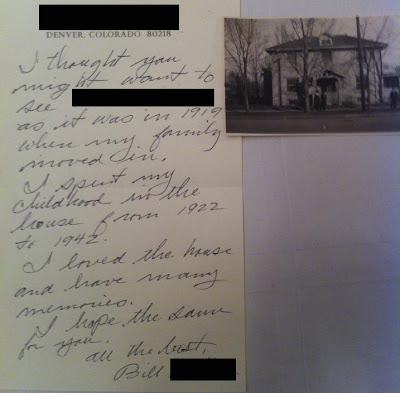 DENVER, COLORADO 80218
I thought you
might want to
see
as it was in 1919
when my family
moved in.
I spent my
childhood in the
house from 1922
to 1942.
I loved the house
and have many
memories.
I hope the same
for you.
all the best,
Bill